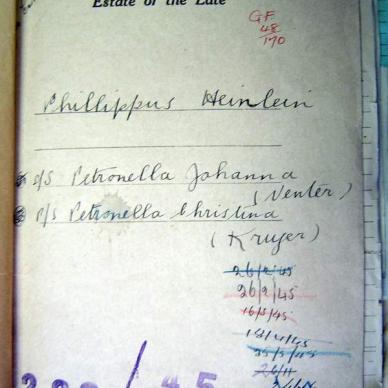 Estate of the Late
GF
48
170
Phillippus Heinlein
o/s Petronella Johanna
(Venter)
p/s Petronella Christina
(Kruger)
26/2/45
26/2/45
16/3/45
18/4/45
25/5/45
/45